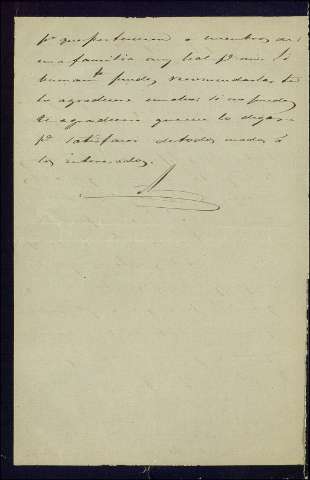 pr que pertenecen a miembros de
una familia muy leal pa mi. Si
buenamte puedes recomendarlas te
lo agradeceré mucho: si no puedes
te agradeceré que me lo digas
pa satisfacer de todos modos á
los interesados.
A